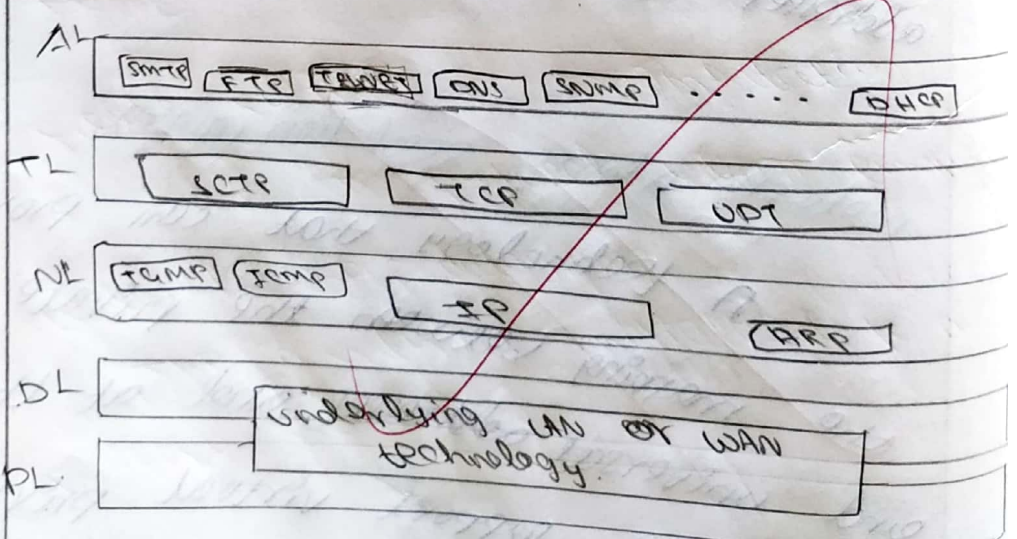 AL
SMTP FTP TELNET DNS SNMP ...... DHCP
TL
SCTP TCP UDT
NL
IGMP ICMP IP ARP
DL
underlying LAN or WAN
technology.
PL.